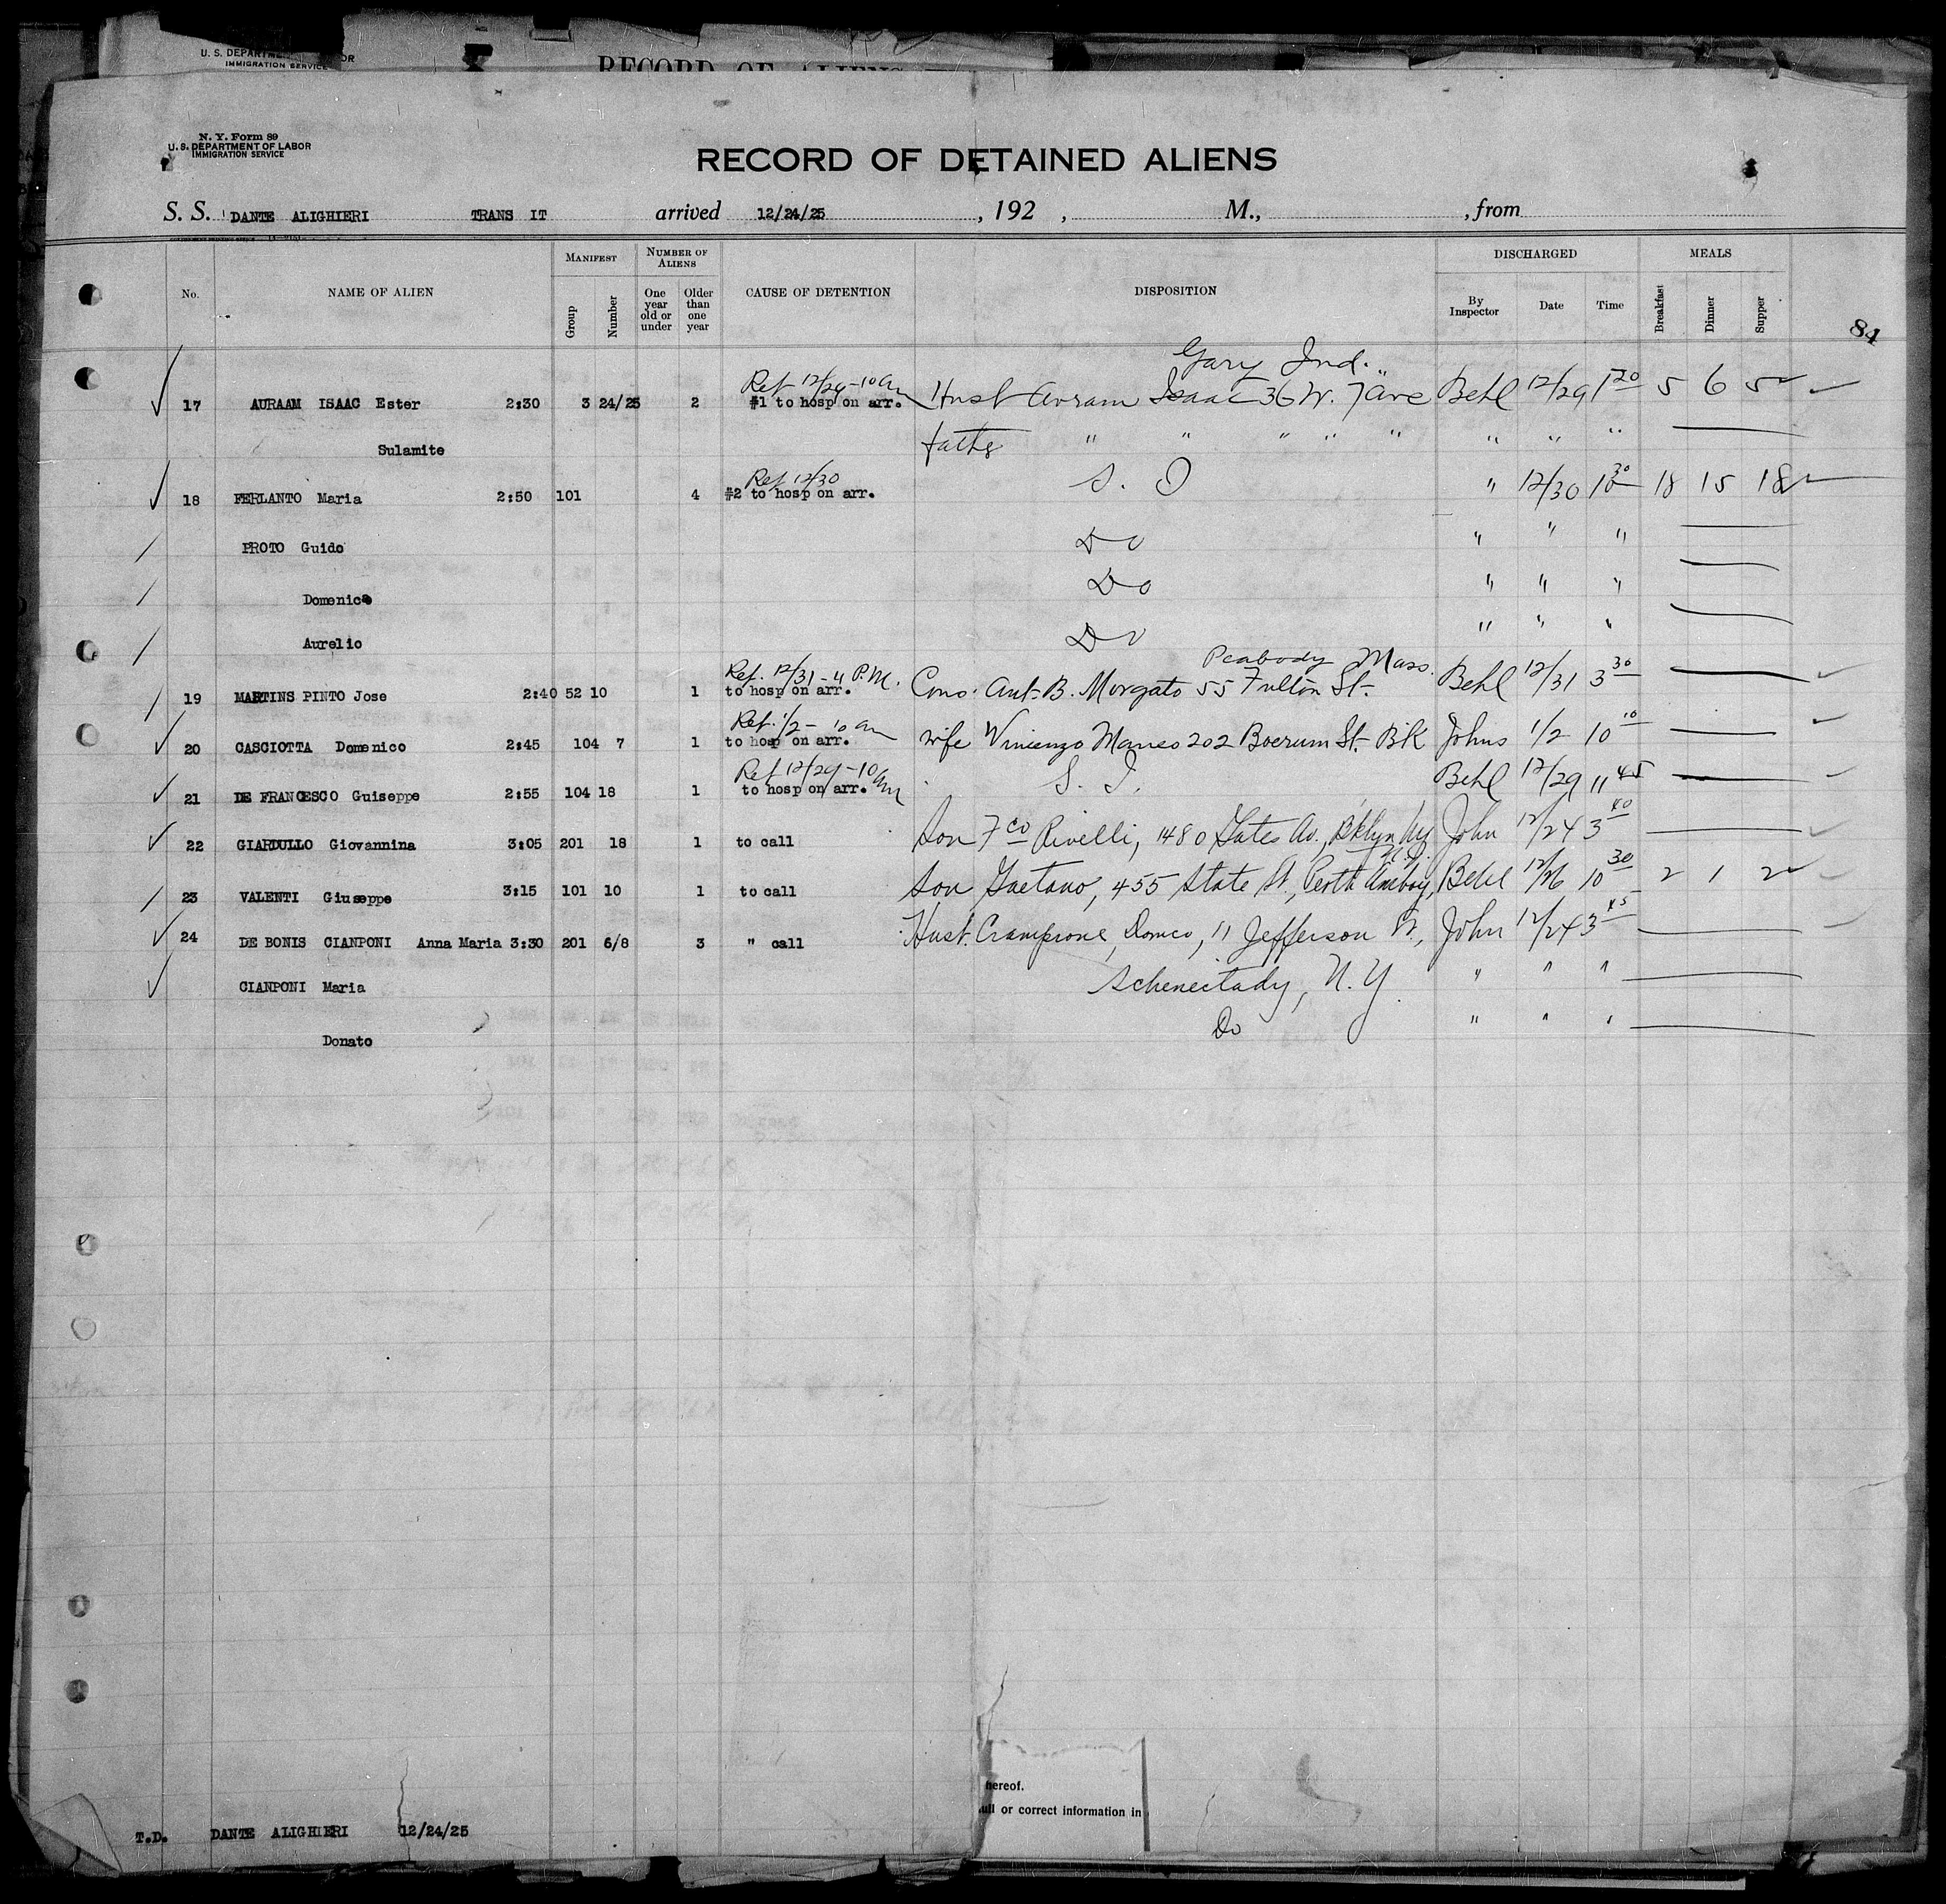 U. S. DEPARTMENT OF LABOR
IMMIGRATION SERVICE
RECORD OF ALIENS
N. Y. Form 89
U. S. DEPARTMENT OF LABOR
IMMIGRATION SERVICE
RECORD OF DETAINED ALIENS
S. S. DANTE ALIGHIERI TRANS IT arrived 12/24/25, 192 , M., , from
No. NAME OF ALIEN MANIFEST Group Number NUMBER OF ALIENS One year old or under Older than one year CAUSE OF DETENTION DISPOSITION DISCHARGED By Inspector Date Time MEALS Breakfast Dinner Supper
84
Gary Ind.
Ret 12/29-10 am
17 AURAAM ISAAC Ester 2:30 3 24/25 2 #1 to hosp on arr. Husb Avram Isaac 36 W. 7 Ave Behl 12/29 1 20 5 6 5
Sulamite fathe " " " " " " " "
Ret 12/30
18 FERLANTO Maria 2:50 101 4 #2 to hosp on arr. S. I " 12/30 10 30 18 15 18
PROTO Guido Do " " "
Domenica Do " " "
Aurelio Do " " "
Ret. 12/31-4 P.M. Peabody Mass.
19 MARTINS PINTO Jose 2:40 52 10 1 to hosp on arr. Cons. Ant. B. Morgato 55 Fulton St. Behl 12/31 3 30
Ret. 1/2- 10 am
20 CASCIOTTA Domenico 2:45 104 7 1 to hosp on arr. wife Vincenzo Manso 202 Boerum St. BK Johns 1/2 10 10
Ret 12/29-10 am
21 DE FRANCESCO Guiseppe 2:55 104 18 1 to hosp on arr. S. I. Behl 12/29 11 45
22 GIARDULLO Giovannina 3:05 201 18 1 to call Son Fco Rivelli, 1480 Gates Av., Bklyn Ny John 12/24 3 40
N.J.
23 VALENTI Giuseppe 3:15 101 10 1 to call Son Gaetano, 455 State St, Perth Amboy, Behl 12/26 10 30 2 1 2
24 DE BONIS CIANPONI Anna Maria 3:30 201 6/8 3 " call Husb. Domco, 11 Jefferson St., John 12/24 3 45
CIANPONI Maria Schenectady, N.Y. " " "
Donato Do " " "
hereof.
full or correct information in
T.D. DANTE ALIGHIERI 12/24/25